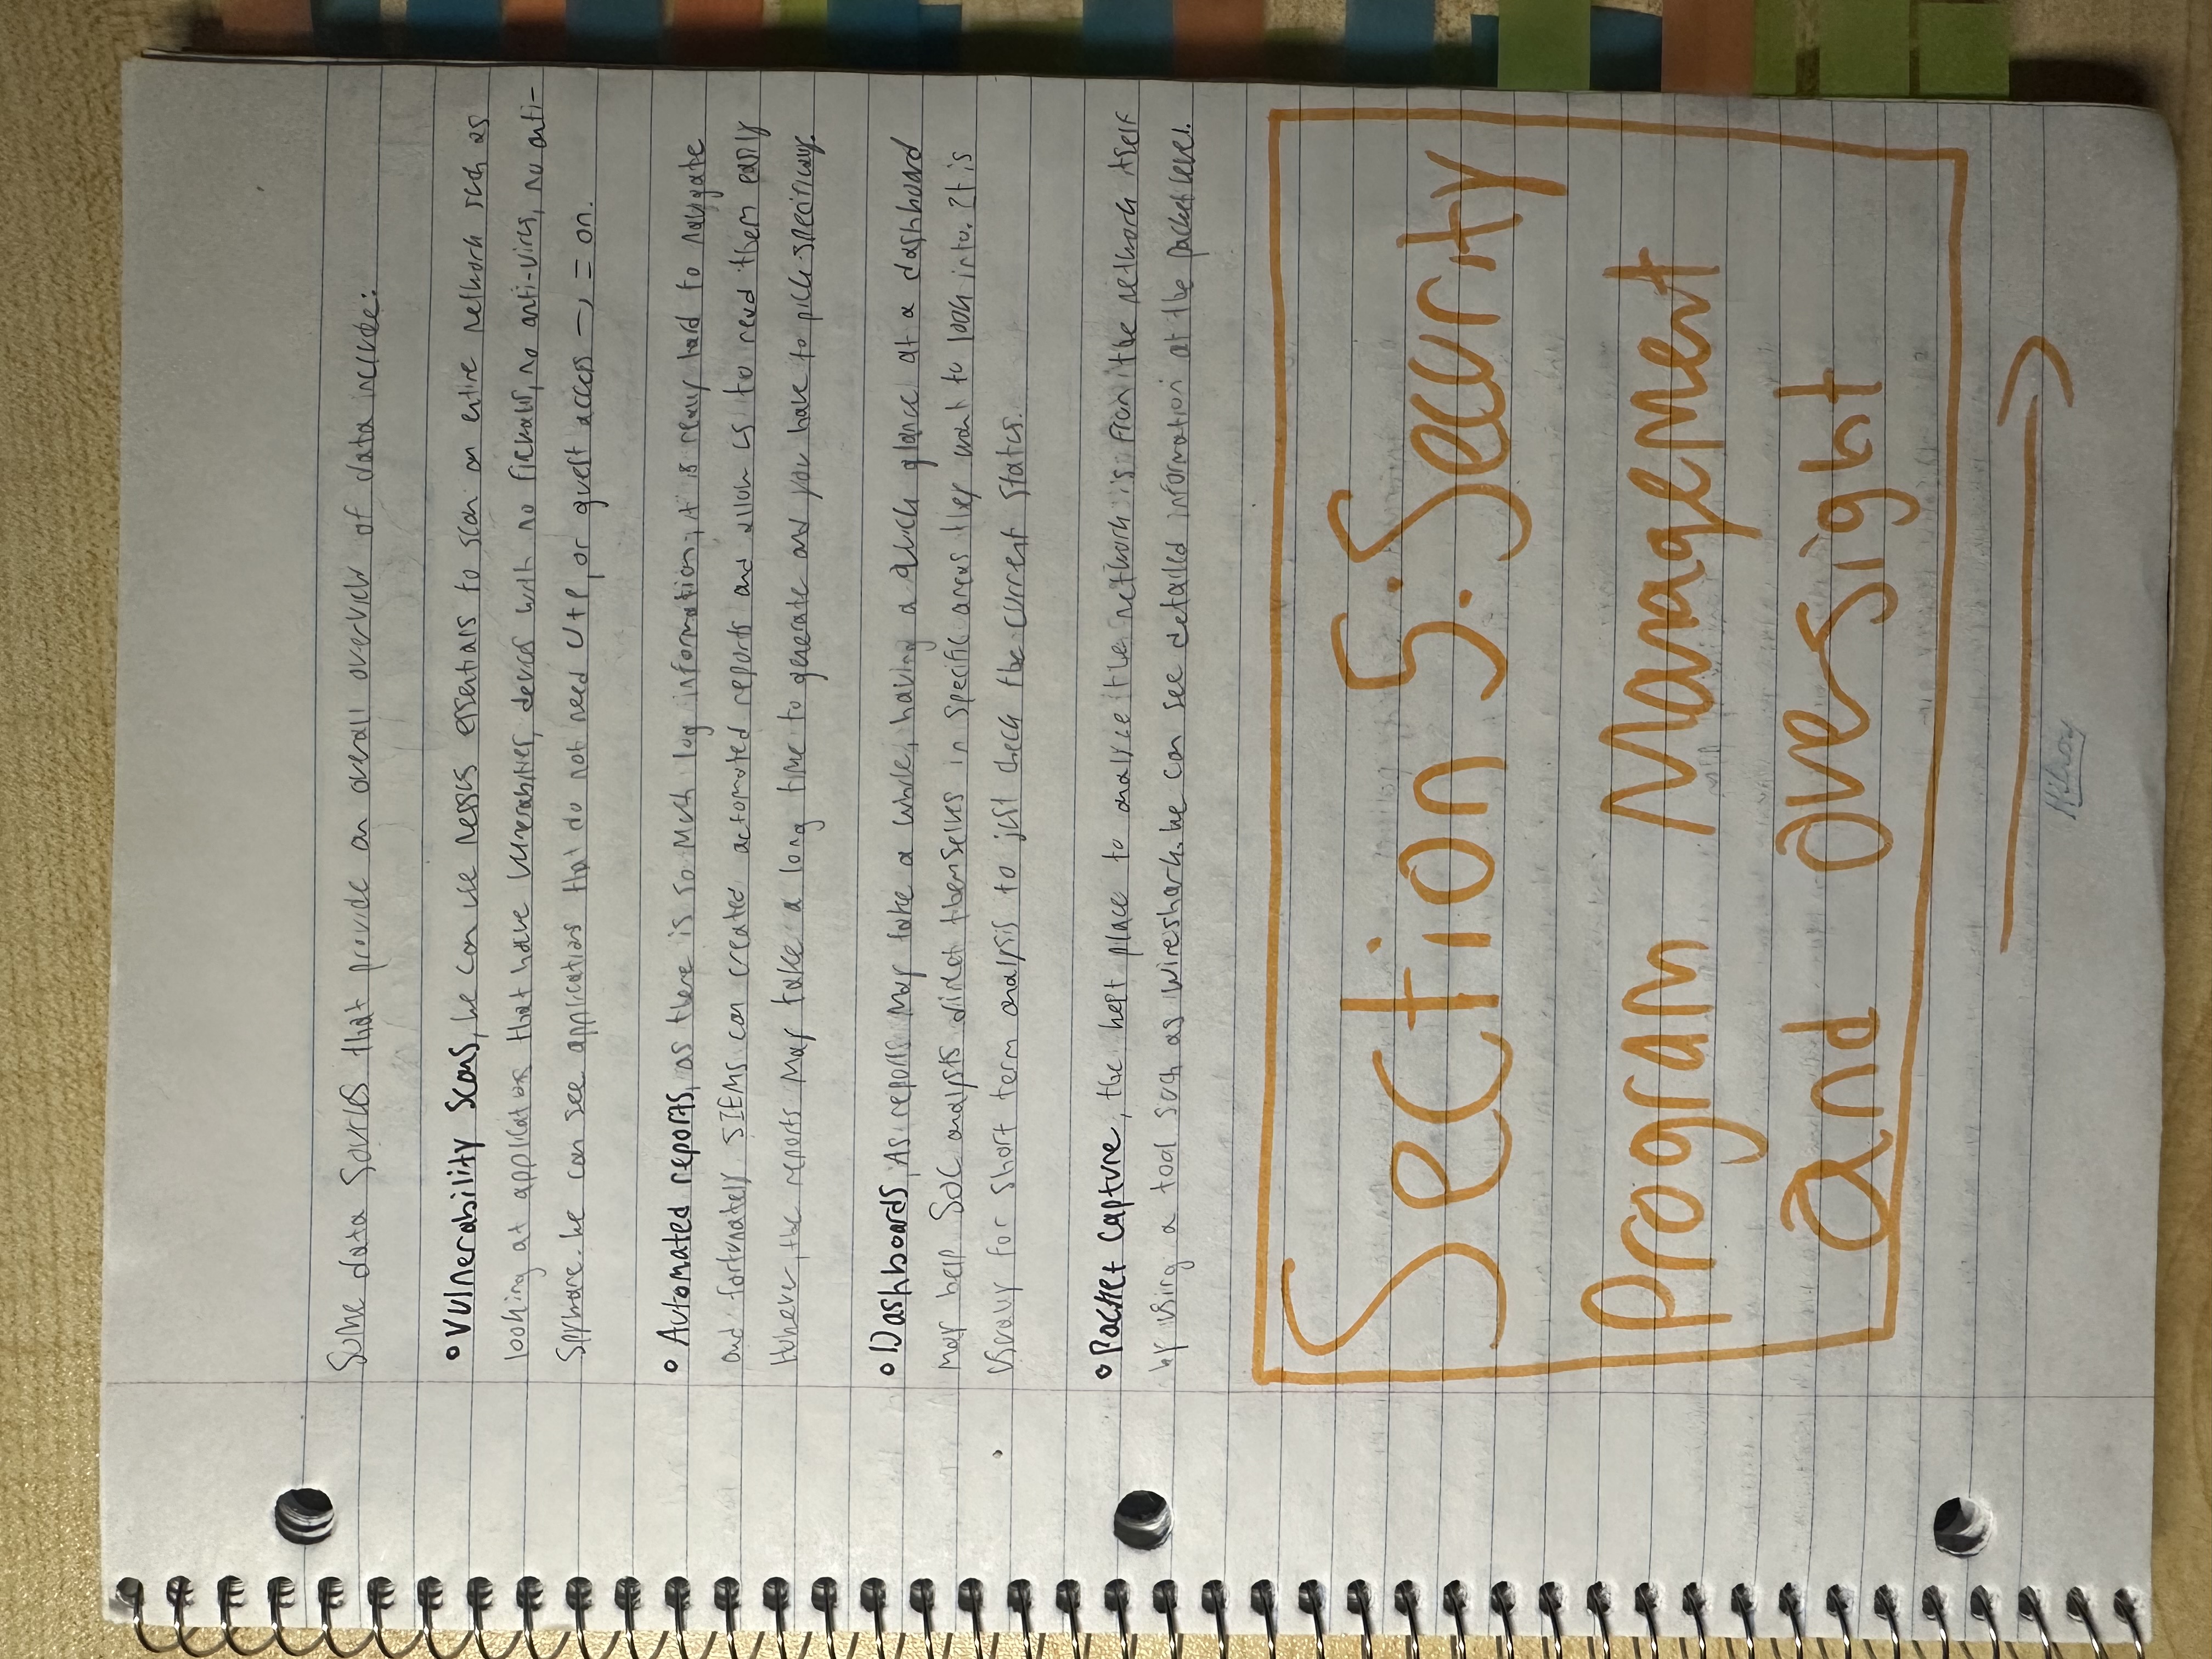 Some data sources that provide an overall overview of data include:
• Vulnerability scans, we can use nessus essentials to scan an entire network such as
looking at applications that have vulnerabilities, devices with no firewalls, no anti-virus, no anti-
spyware. We can see applications that do not need U+P, or guest access → = on.
• Automated reports, as there is so much log information, it is really hard to navigate
and fortunately SIEMs can created automated reports and allow us to read them easily
However, the reports may take a long time to generate and you have to pick specifically.
• Dashboards, As reports may take a while, having a quick glance at a dashboard
may help SOC analysts direct themselves in specific areas they want to look into. It is
usually for short term analysis to just check the current status.
• Packet capture, the best place to analyze the network is from the network itself
by using a tool such as wireshark. We can see detailed information at the packet level.
Section 5: Security
Program Management
and oversight
Hilroy